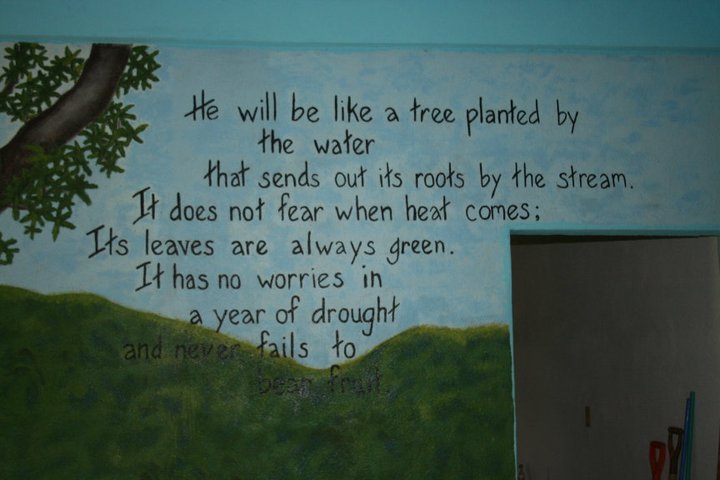 He will be like a tree planted by
the water
that sends out its roots by the stream.
It does not fear when heat comes;
Its leaves are always green.
It has no worries in
a year of drought
and never fails to
bear fruit.